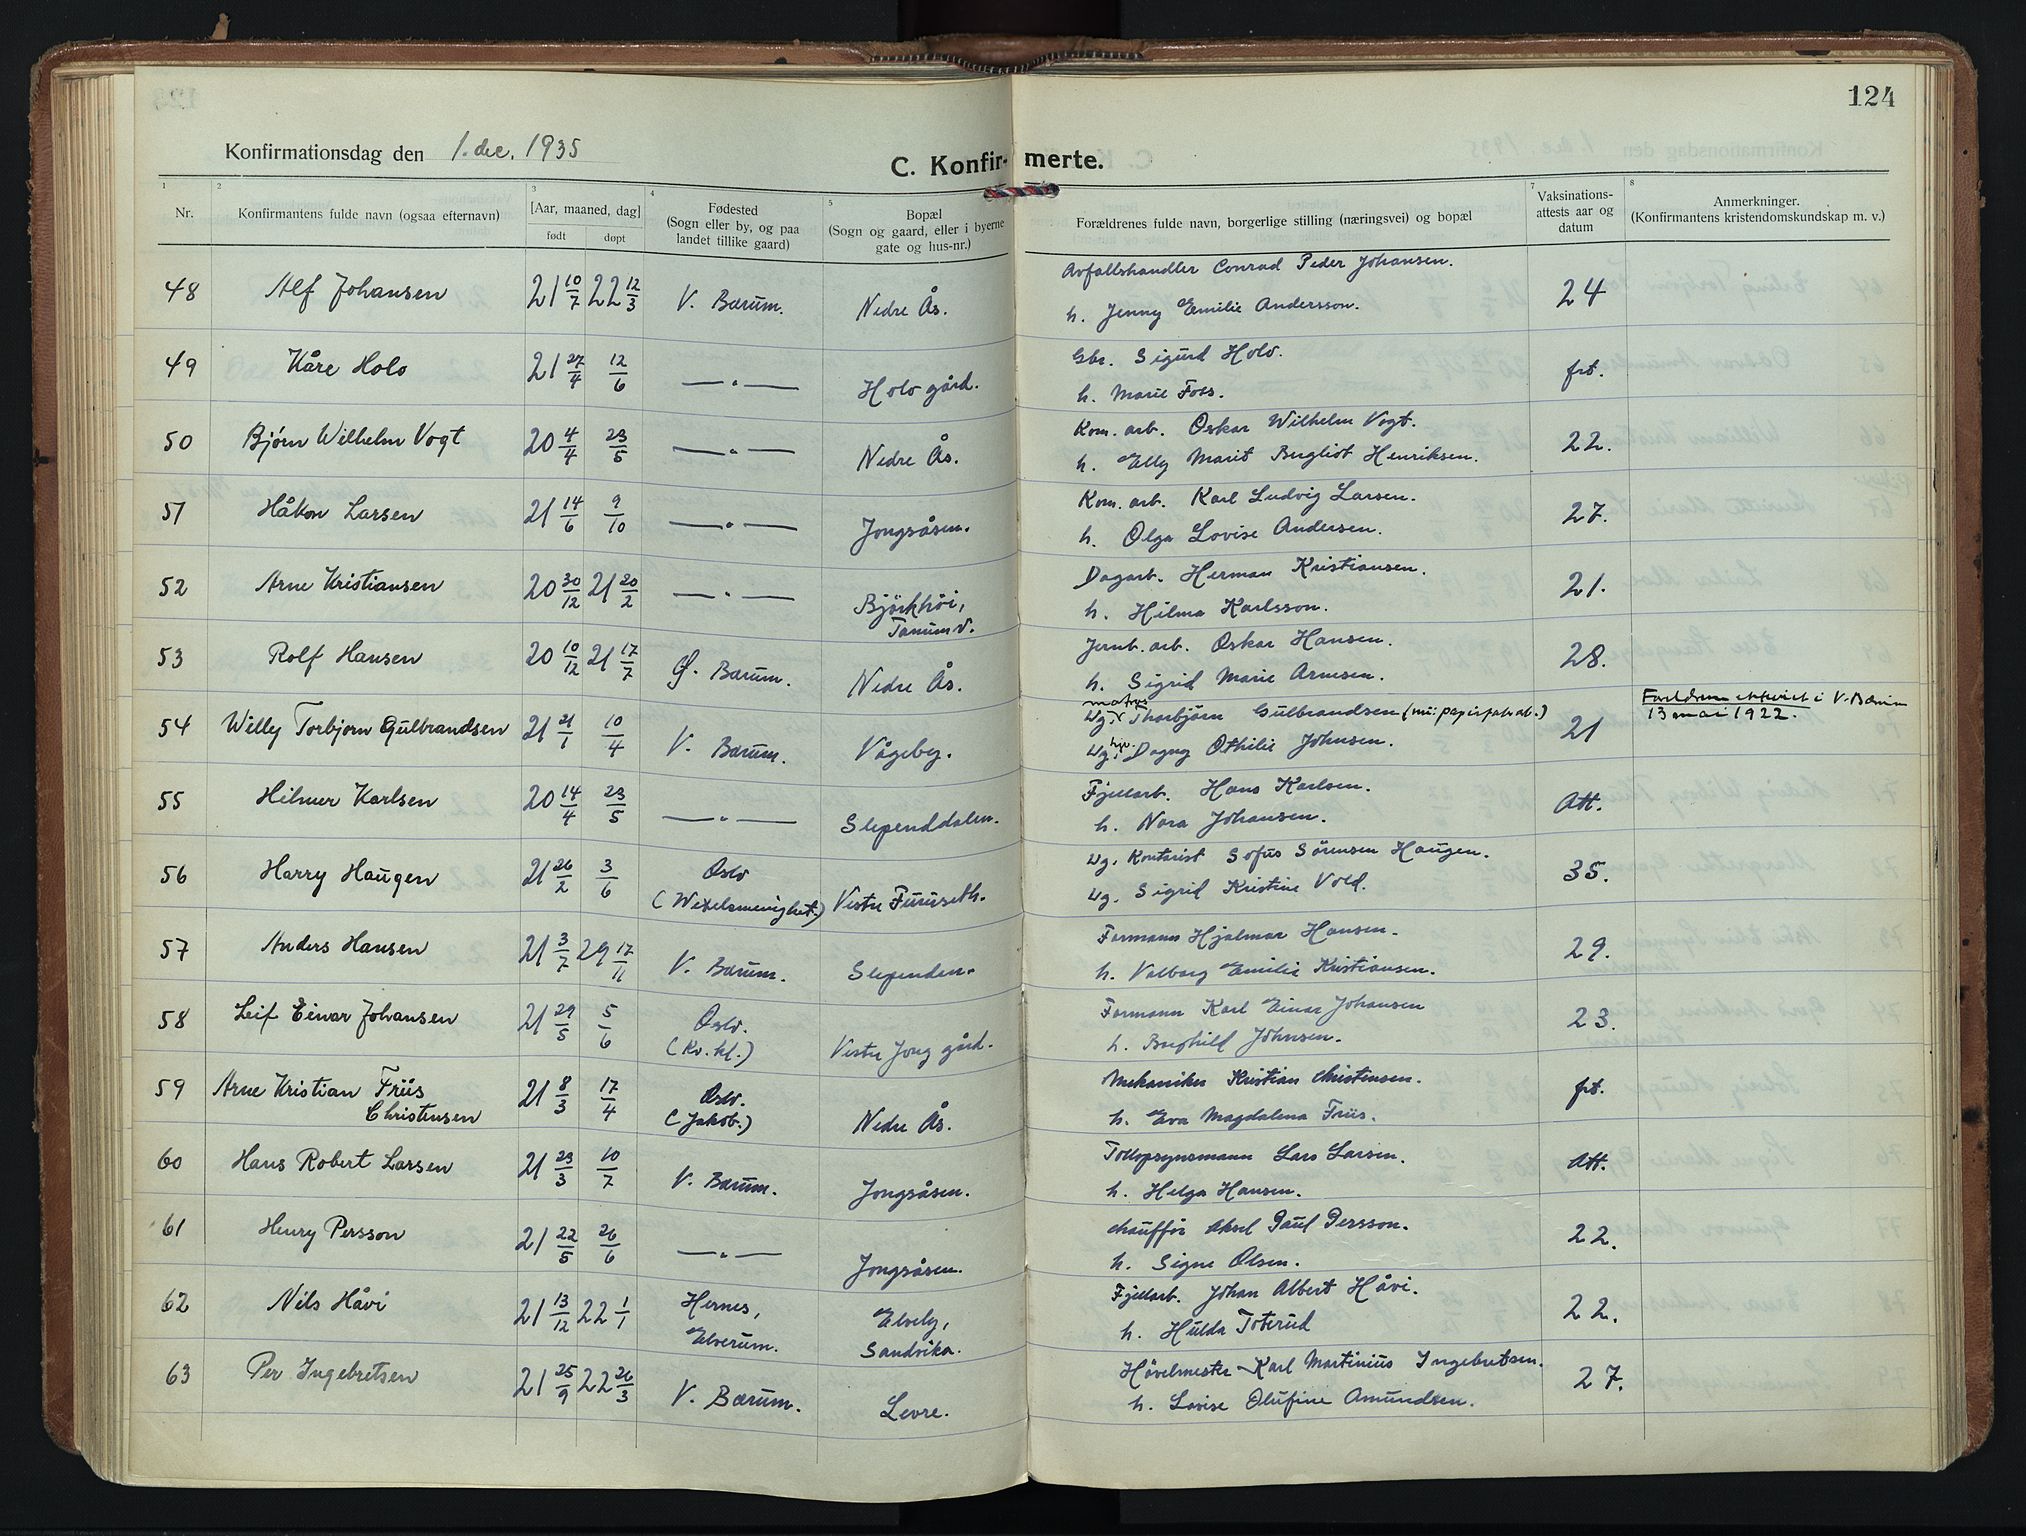 124
Konfirmationsdag den 1. dec. 1935
C. Konfir- merte.
1 2 3 4 5 7 8
Nr. Konfirmantens fulde navn (ogsaa efternavn) [Aar, maaned, dag] født døpt Fødested (Sogn eller by, og paa landet tillike gaard) Bopæl (Sogn og gaard, eller i byerne gate og hus-nr.) Forældrenes fulde navn, borgerlige stilling (næringsvei) og bopæl Vaksinations-attests aar og datum Anmerkninger. (Konfirmantens kristendomskundskap m. v.)
48 Alf Johansen 21 10/7 22 12/3 V. Bærum. Nedre Ås. Avfallshandler Conrad Peder Johansen. 24
h. Jenny Emilie Andersson.
49 Kåre Holo 21 27/4 12/6 — " — Holo gård. Gbr. Sigurd Holo. frt.
h. Marie Foss.
50 Bjørn Wilhelm Vogt 20 4/4 23/5 — " — Nedre Ås. Kom. arb. Oskar Wilhelm Vogt. 22.
h. Elly Marit Bugliot Henriksen.
51 Håkon Larsen 21 14/6 9/10 — " — Jongsåsen. Kom. arb. Karl Ludvig Larsen. 27.
h. Olga Lovise Andersen.
52 Arne Kristiansen 20 30/12 21 20/2 — " — Bjørkhøi, Tanum v. Dagarb. Herman Kristiansen. 21.
h. Hilma Karlsson.
53 Rolf Hansen 20 10/12 21 17/7 Ø. Bærum. Nedre Ås. Jernb. arb. Oskar Hansen. 28.
h. Sigrid Marie Arnesen.
54 Willy Torbjørn Gulbrandsen 21 21/1 10/4 V. Bærum. Vågeby. matros Ug. Thorbjørn Gulbrandsen (nu: papirfabr. ab.) 21 i V. Bærum 13 mai 1922.
Ug. Dagny Othilie Johnsen.
55 Hilmer Karlsen 20 14/4 23/5 — " — Slependdalen. Fjellarb. Hans Karlsen. Att.
h. Nora Johansen.
56 Harry Haugen 21 26/2 3/6 Oslo (Wexelsmenighet.) Vestre Furuseth. Ug. Kontorist Sofus Sørensen Haugen. 35.
Ug. Sigrid Kristine Vold.
57 Anders Hansen 21 3/7 29 17/11 V. Bærum. Slependen. Formann Hjalmar Hansen. 29.
h. Valborg Emilie Kristiansen.
58 Leif Einar Johansen 21 29/5 5/6 Oslo. (Kv. kl.) Vestre Jong gård. Formann Karl Einar Johansen 23.
h. Borghild Johnsen.
59 Arne Kristian Friis Christensen 21 8/3 17/4 Oslo. (Jakob.) Nedre Ås. Mekaniker Kristian Christensen. frt.
h. Eva Magdalena Friis.
60 Hans Robert Larsen 21 23/3 10/7 V. Bærum. Jongsåsen. Tollopsynsmann Lars Larsen. Att.
h. Helga Hansen.
61 Henry Persson 21 22/5 26/6 — " — Jongsåsen. chauffør Aksel Paul Persson. 22.
h. Signe Olsen.
62 Nils Håvi 21 13/12 22 1/1 Hernes, Elverum. Elvely, Sandvika. Fjellarb. Johan Albert Håvi. 22.
h. Hulda Toterud
63 Per Ingebretsen 21 25/9 22 26/3 V. Bærum. Levre. Høvelmester Karl Martinius Ingebretsen. 27.
h. Lovise Olufine Amundsen.